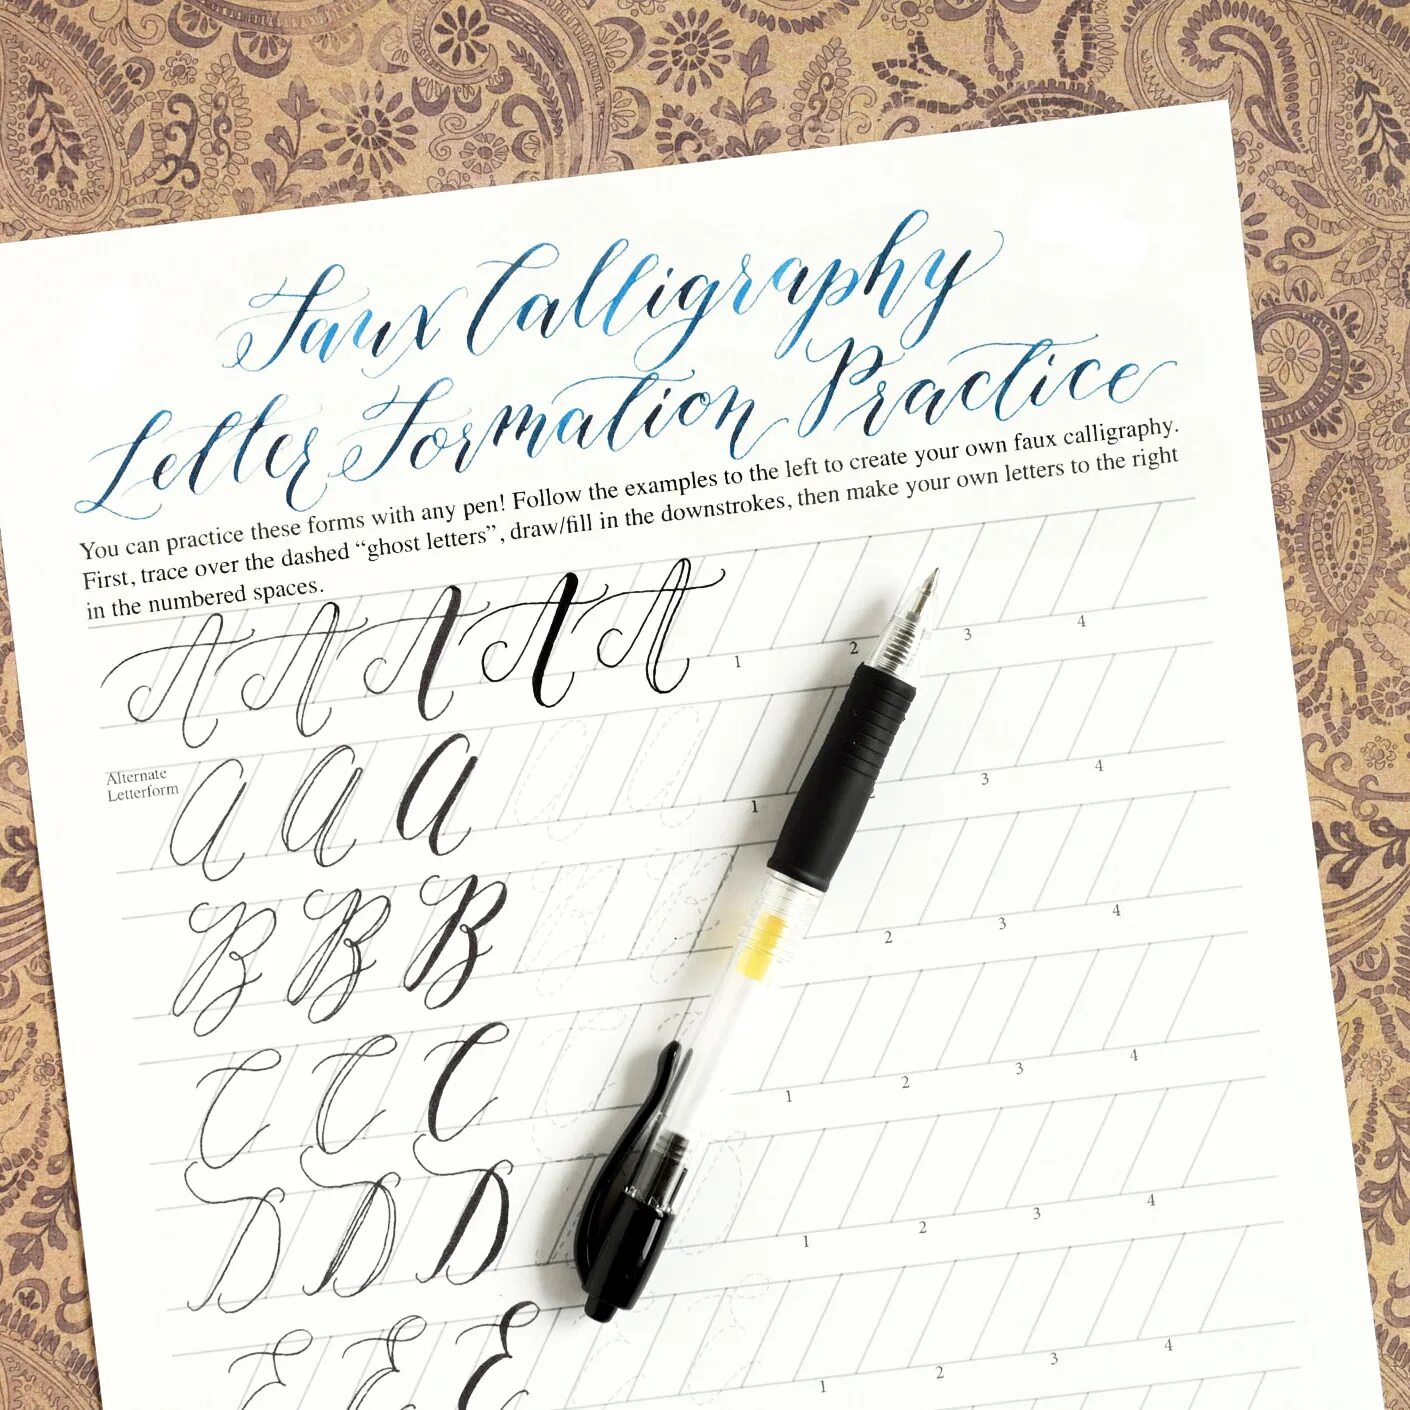 Faux Calligraphy
Letter Formation Practice
You can practice these forms with any pen! Follow the examples to the left to create your own faux calligraphy.
First, trace over the dashed “ghost letters”, draw/fill in the downstrokes, then make your own letters to the right
in the numbered spaces.
A A A A A 1 2 3 4
Alternate
Letterform
a a a 1 3 4
B B B 2 3 4
C C C 1 2 3 4
D D D 1 2 3 4
E E E 1 2 3 4